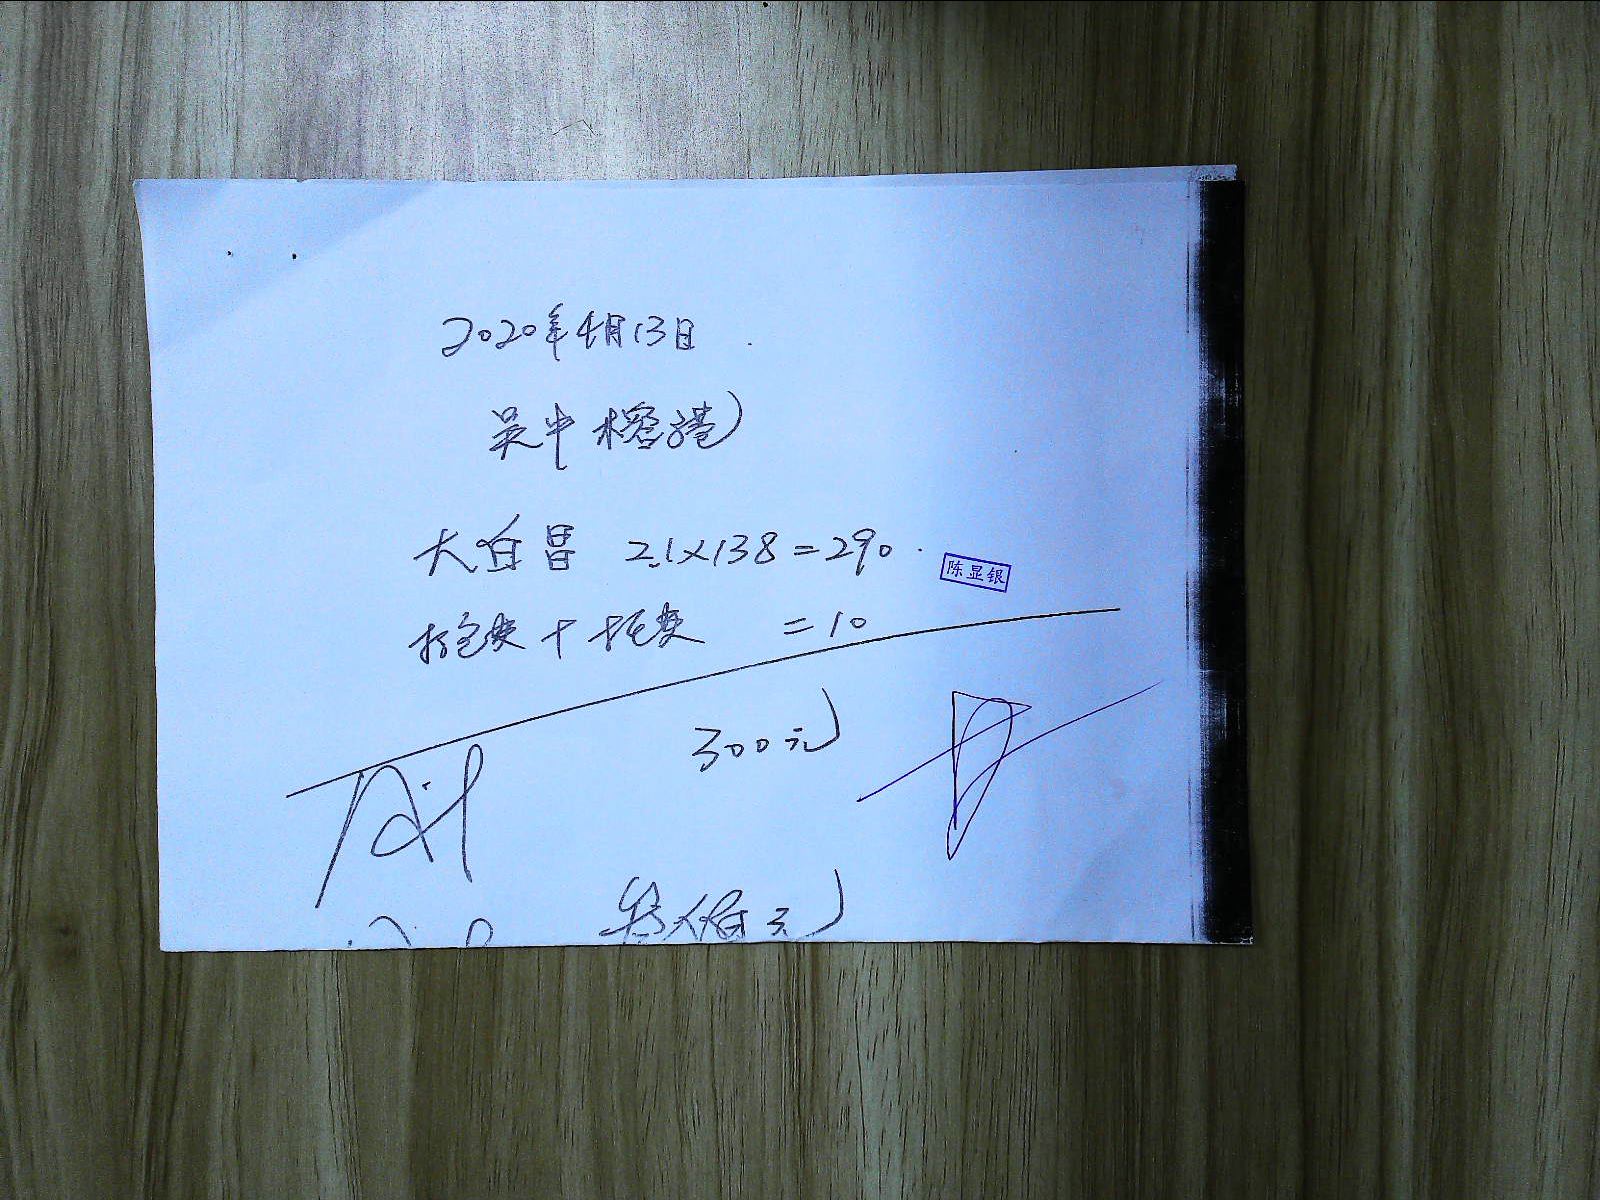 2020年4月13日
吴中榕港
大白昌 2.1×138=290
陈显银
打包费+托费 =10
300元